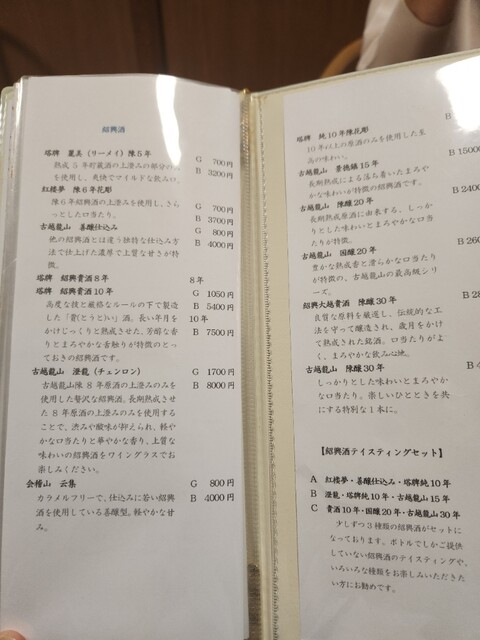 紹興酒
塔牌　麗美（リーメイ）陳5年　G　700円
熟成5年貯蔵酒の上澄みの部分のみ　B　3200円
を使用し、爽快でマイルドな飲み口。
紅楼夢　陳6年花彫　G　700円
陳6年紹興酒の上澄みを使用し、さら　B　3700円
っとした口当たり。
古越龍山　善醸仕込み　G　800円
他の紹興酒とは違う独特な仕込み方　B　4000円
法で仕上げた濃厚で上質な甘さが特
徴。
塔牌　紹興貴酒8年　8年
塔牌　紹興貴酒10年　G　1050円
高度な技と厳格なルールの下で製造　B　5400円
した「貴（とうとい）」酒。長い年月を　10年
かけじっくりと熟成させた、芳醇な香　B　7500円
りとまろやかな舌触りが特徴のとっ
ておきの紹興酒です。
古越龍山　澄龍（チェンロン）　G　1700円
古越龍山陳8年原酒の上澄みのみを　B　8000円
使用した贅沢な紹興酒。長期熟成させ
た8年原酒の上澄みのみを使用する
ことで、渋みや酸味が抑えられ、軽や
かな口当たりと華やかな香り、上質な
味わいの紹興酒をワイングラスでお
楽しみください。
会稽山　云集　G　800円
カラメルフリーで、仕込みに若い紹興　B　4000円
酒を使用している善醸型。軽やかな甘
み。
塔牌　純10年陳花彫　B
10年以上の原酒のみを使用した至
高の味わい。
古越龍山　景徳鎮15年　B
長期熟成による落ち着いたまろや
かな味わいが特徴の紹興酒です。
古越龍山　陳醸20年　B
長期熟成原酒に由来する、しっか
りとした味わいとまろやかな口当
たりが特徴。
古越龍山　国醸20年　B
豊かな熟成香と滑らかな口当たり
が特徴の、古越龍山の最高級シリ
ーズ。
紹興大越貴酒　陳醸30年　B
良質な原料を厳選し、伝統的な工
法を守って醸造され、歳月をかけ
て熟成された銘酒。口当たりがよ
く、まろやかな飲み心地。
古越龍山　陳醸30年　B
しっかりとした味わいとまろやか
な口当たり。楽しいひとときを共
にする特別な1本に。
【紹興酒テイスティングセット】
A　紅楼夢・善醸仕込み・塔牌純10年
B　澄龍・塔牌純10年・古越龍山15年
C　貴酒10年・国醸20年・古越龍山30年
少しずつ3種類の紹興酒がセットに
なっております。ボトルでしかご提供
していない紹興酒のテイスティングや、
いろいろな種類をお楽しみいただきた
い方にお勧めです。